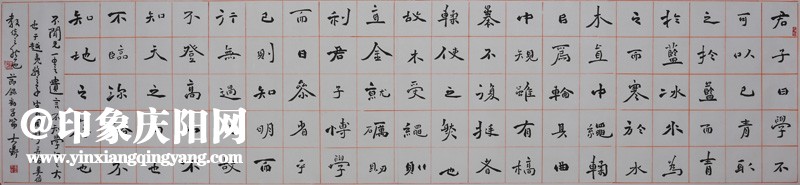 君子曰學不
可以已青取
之於藍而青
於藍冰水為
之而寒於水
木直中繩輮
以為輪其曲
中規雖有槁
暴不復挺者
輮使之然也
故木受繩則
直金就礪則
利君子博學
而日參省乎
己則知明而
行無過矣故
不登高山不
知天之高也
不臨深谿不
知地之厚也
不聞先王之遺言不知學問之大
也干越夷貉之子生
教使之然也
@印象庆阳网
www.yinxiangqingyang.com